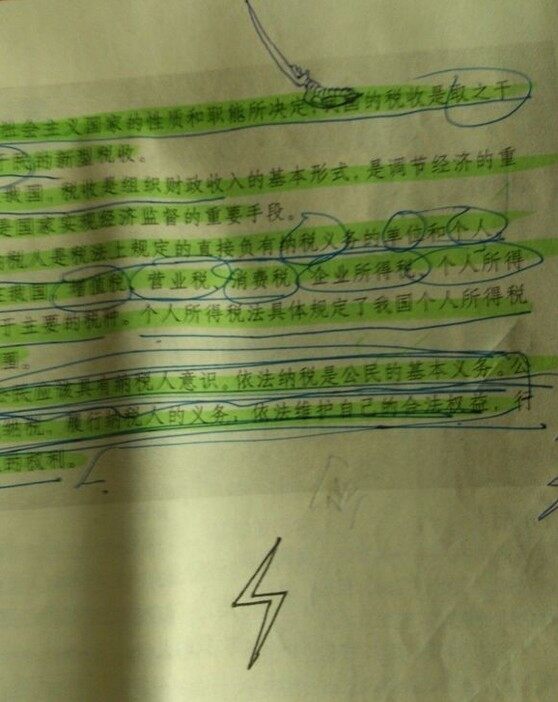 社会主义国家的性质和职能所决定,我国的税收是取之于
民的新型税收。
我国,税收是组织财政收入的基本形式,是调节经济的重
是国家实现经济监督的重要手段。
纳税人是税法上规定的直接负有纳税义务的单位和个人。
我国,增值税、营业税、消费税、企业所得税、个人所得
于主要的税种。个人所得税法具体规定了我国个人所得税
面。
民应该具有纳税人意识。依法纳税是公民的基本义务。公
纳税,履行纳税人的义务,依法维护自己的合法权益,行
的权利。